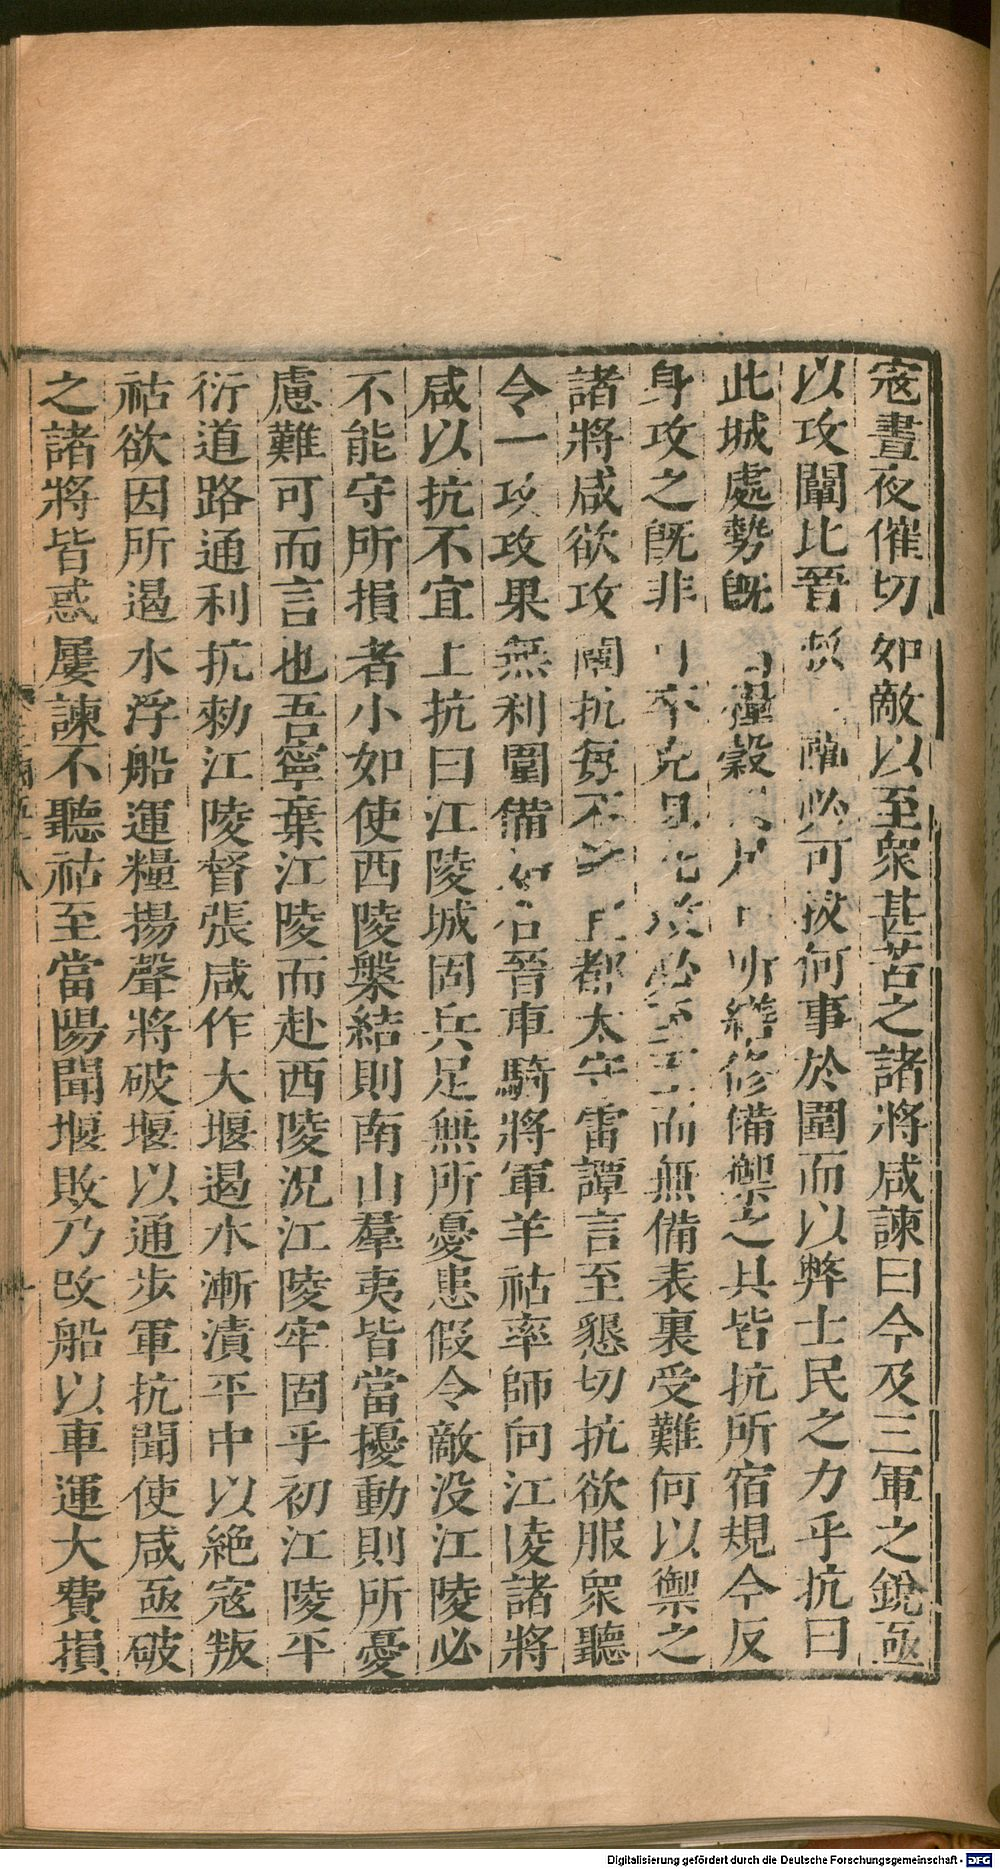 寇晝夜催切如敵以至衆甚苦之諸將咸諫曰今及三軍之銳亟
以攻闡比晉救必可拔何事於圍而以弊士民之力乎抗曰
此城處勢既糧穀所繕修備禦之具皆抗所宿規今反
身攻之既非可卒克且必至至而無備表裏受難何以禦之
諸將咸欲攻闡抗每不都太守雷譚言至懇切抗欲服衆聽
令一攻攻果無利圍備始合晉車騎將軍羊祜率師向江陵諸將
咸以抗不宜上抗曰江陵城固兵足無所憂患假令敵没江陵必
不能守所損者小如使西陵槃結則南山羣夷皆當擾動則所憂
慮難可而言也吾寧棄江陵而赴西陵況江陵牢固乎初江陵平
衍道路通利抗勑江陵督張咸作大堰遏水漸漬平中以絶寇叛
祜欲因所遏水浮船運糧揚聲將破堰以通步軍抗聞使咸亟破
之諸將皆惑屢諫不聽祜至當陽聞堰敗乃改船以車運大費損
Digitalisierung gefördert durch die Deutsche Forschungsgemeinschaft - DFG